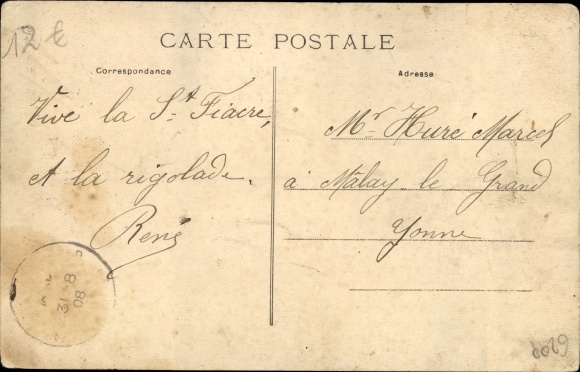 12 €
CARTE POSTALE
Correspondance
Adresse
Vive la St Fiacre,
et la rigolade.
René
Mr Huré Marcel
à Malay-le-Grand
Yonne
8
31
08